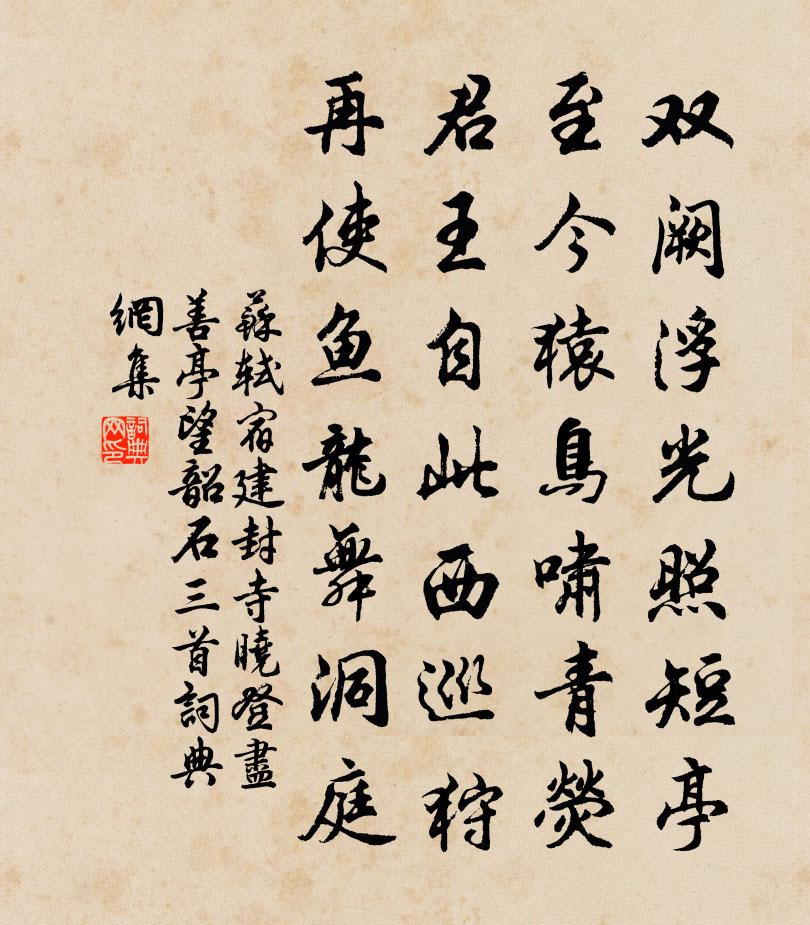 双阙浮光照短亭
至今猿鳥啸青荧
君王自此西巡狩
再使鱼龍舞洞庭
蘇軾宿建封寺曉登盡
善亭望韶石三首詞典
網集
詞典
网印